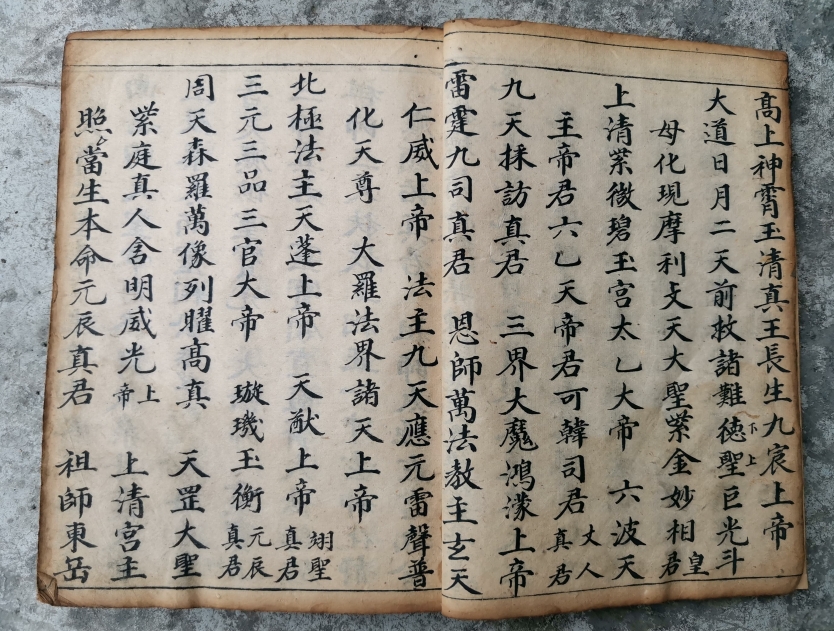 高上神霄玉清真王長生九宸上帝
大道日月二天前救諸難德聖下上巨光斗
母化現摩利攴天大聖紫金妙相皇君
上清紫微碧玉宮太乙大帝 六波天
主帝君六乙天帝君可韓司君丈人真君
九天採訪真君 三界大魔鴻濛上帝
雷霆九司真君 恩師萬法教主玄天
仁威上帝 法主九天應元雷聲普
化天尊 大羅法界諸天上帝
北極法主天蓬上帝 天猷上帝翊聖真君
三元三品三官大帝 璇璣玉衡元辰真君
周天森羅萬像列曜高真 天罡大聖
紫庭真人含明威光上帝 上清宮主
照當生本命元辰真君 祖師東岳